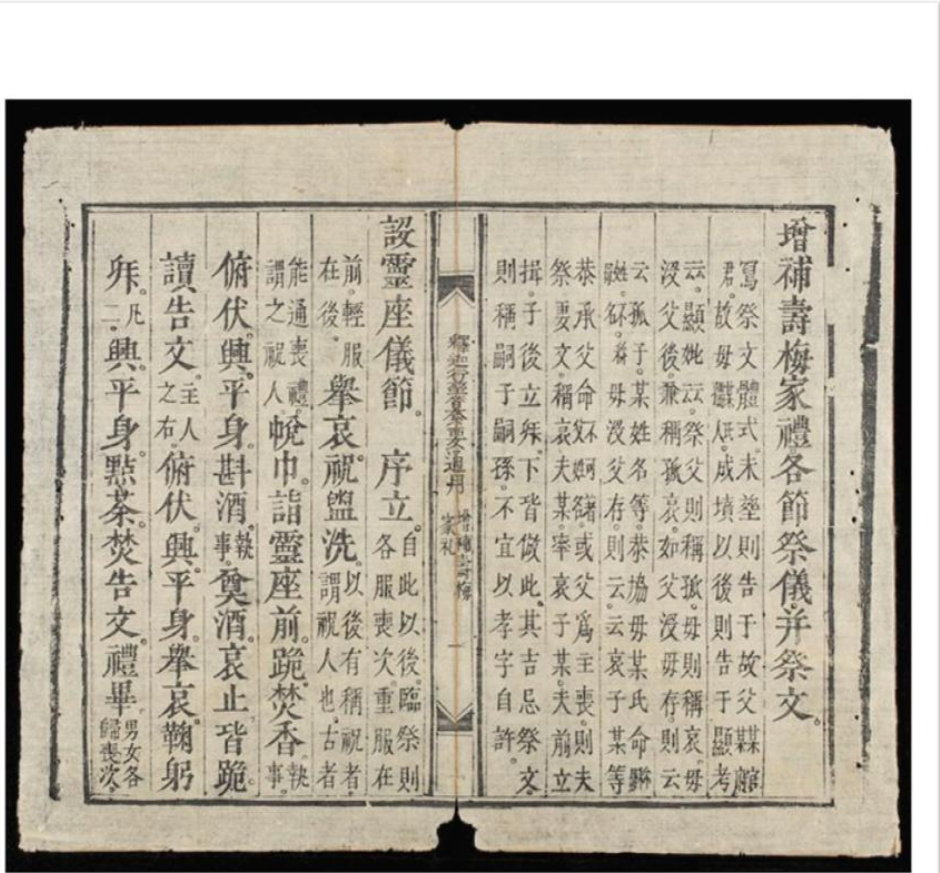 增補壽梅家禮各節祭儀并祭文。
寫祭文體式。未塟則告于故父某
君。故母人。成墳以後則告于顯考
云。顯妣云。祭父則稱孤。母則稱哀。母
沒父後兼稱孤哀。如父沒母存。則云
云孤子某姓名等。恭協母某氏命
若母沒父存。則云云哀子某等
恭承父命或父爲主喪。則夫
祭妻文。稱哀夫某。率哀子某。夫前立
揖。子後立拜。下皆倣此。其吉忌祭文
則稱嗣子嗣孫。不宜以孝字自許。
通用
家礼
一
設靈座儀節。 序立。
自此以後。臨祭則
各服喪次。重服在
前。輕服
在後。
舉哀。祝盥洗。
以後有稱祝者。
謂祝人也。古者
能通喪禮。
謂之祝人。
帨巾。詣靈座前。跪。焚香。
執
事。
俯伏。興。平身。斟酒。
執
事。
奠酒。哀止。皆跪。
讀告文。
主人
之右。
俯伏。興。平身。舉哀。鞠躬
拜。
凡
二。
興。平身。點茶。焚告文。禮畢。
男女各
歸喪次。